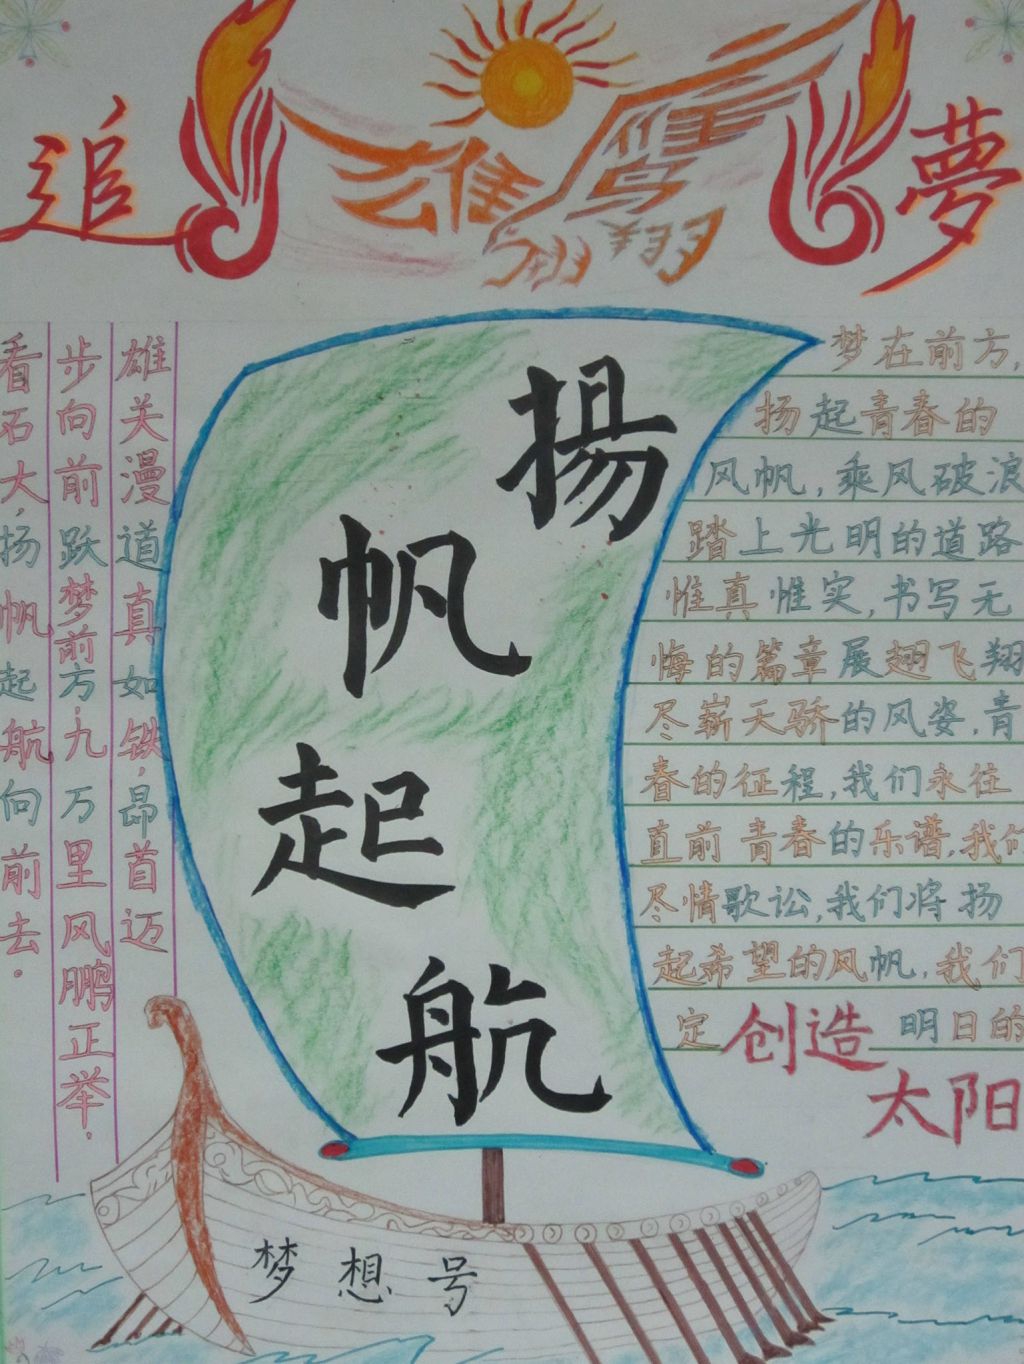 追夢
雄鹰翱翔
揚帆起航
雄关漫道真如铁,昂首迈
步向前跃梦前方,九万里风鹏正举.
看石大,扬帆起航向前去.
梦在前方,
扬起青春的
风帆,乘风破浪
踏上光明的道路
惟真惟实,书写无
悔的篇章展翅飞翔
尽崭天骄的风姿,青
春的征程,我们永往
直前青春的乐谱,我们
尽情歌讼,我们将扬
起希望的风帆,我们
定创造明日的
太阳
梦想号